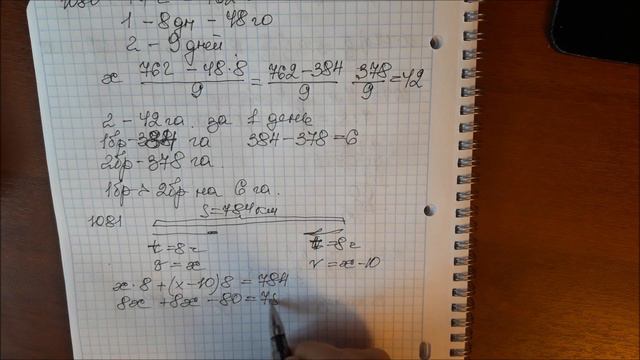 1 – 8дн – 48 га
2 – 9 дней
x (762 – 48·8)/9 = (762 – 384)/9 378/9 = 42
2 – 42 га. за 1 день
1бр – 384 га 384 – 378 = 6
2бр – 378 га.
1бр > 2бр на 6 га.
1081 S = 784 км
t = 8 ч t = 8 ч
v = x v = x – 10
x · 8 + (x – 10) 8 = 784
8x + 8x – 80 = 78